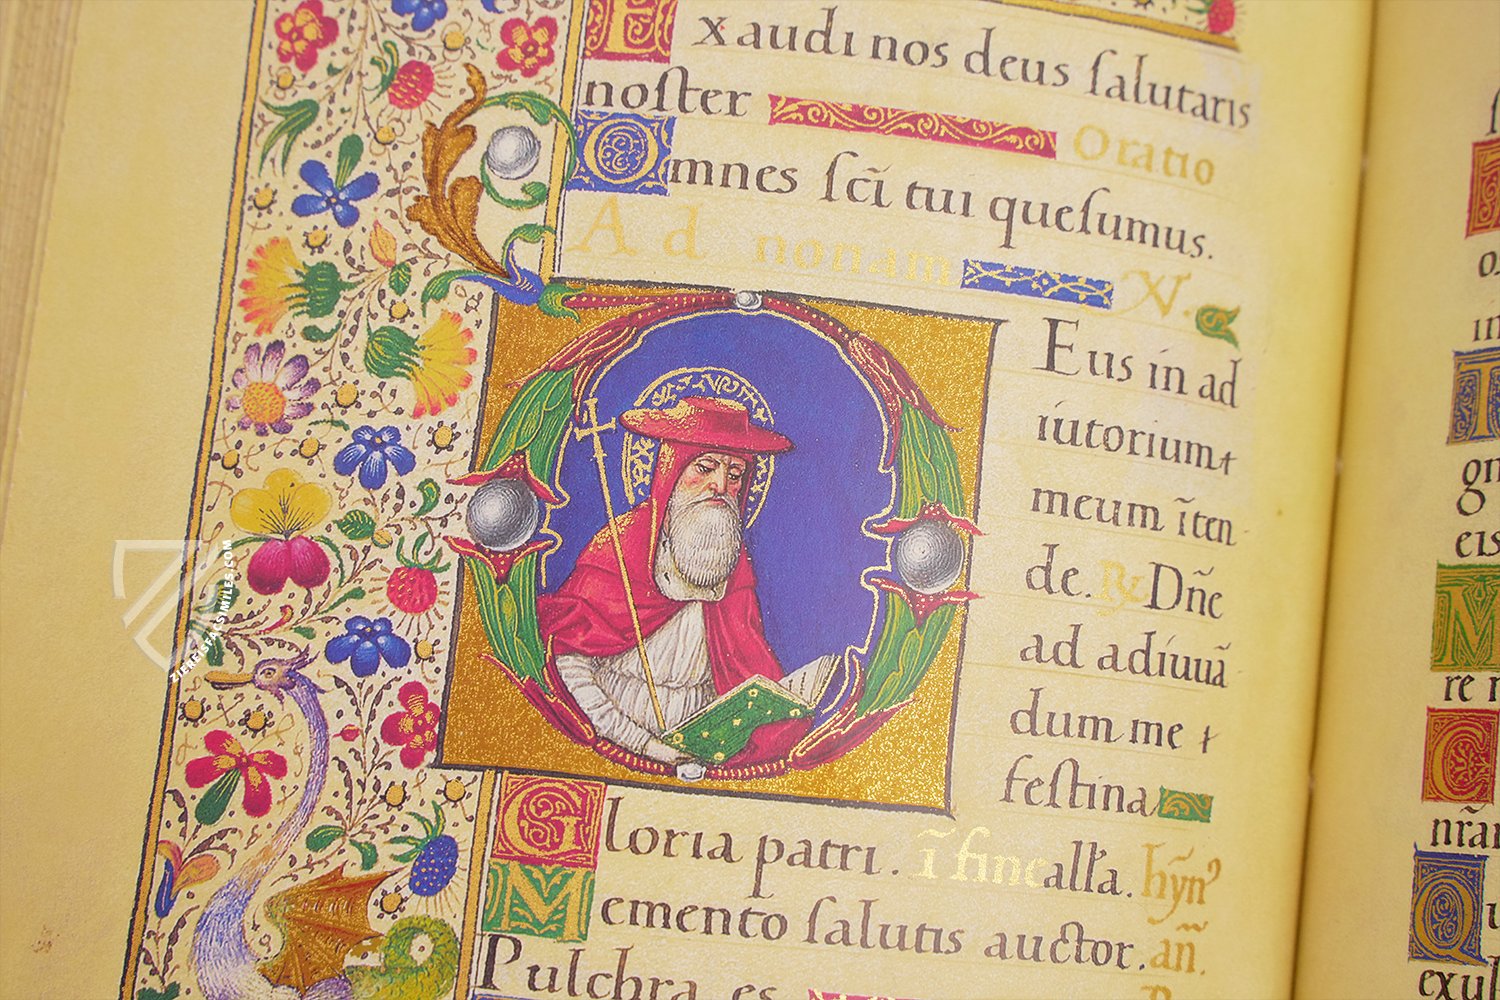 Exaudi nos deus ſalutaris
noſter Oratio
Omnes ſcĩ tui queſumus.
Ad nonam V.
Eus in ad
iutorium
meum ĩten
de. R Dñe
ad adiuuã
dum me
feſtina
Gloria patri. ĩ fine all'a. hỹn
Memento ſalutis auctor. añ.
Pulchra es
ZIEREIS FACSIMILES.COM
re
exul